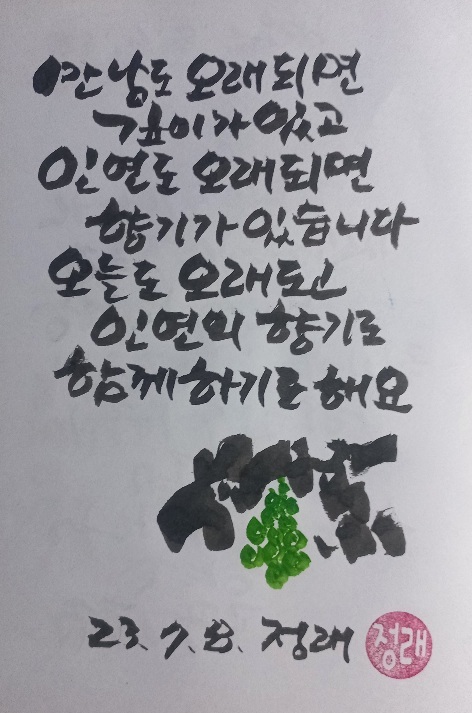 만남도 오래되면
깊이가 있고
인연도 오래되면
향기가 있습니다
오늘도 오래토록
인연의 향기로
함께하기로 해요
23. 7. 8. 정래
정래